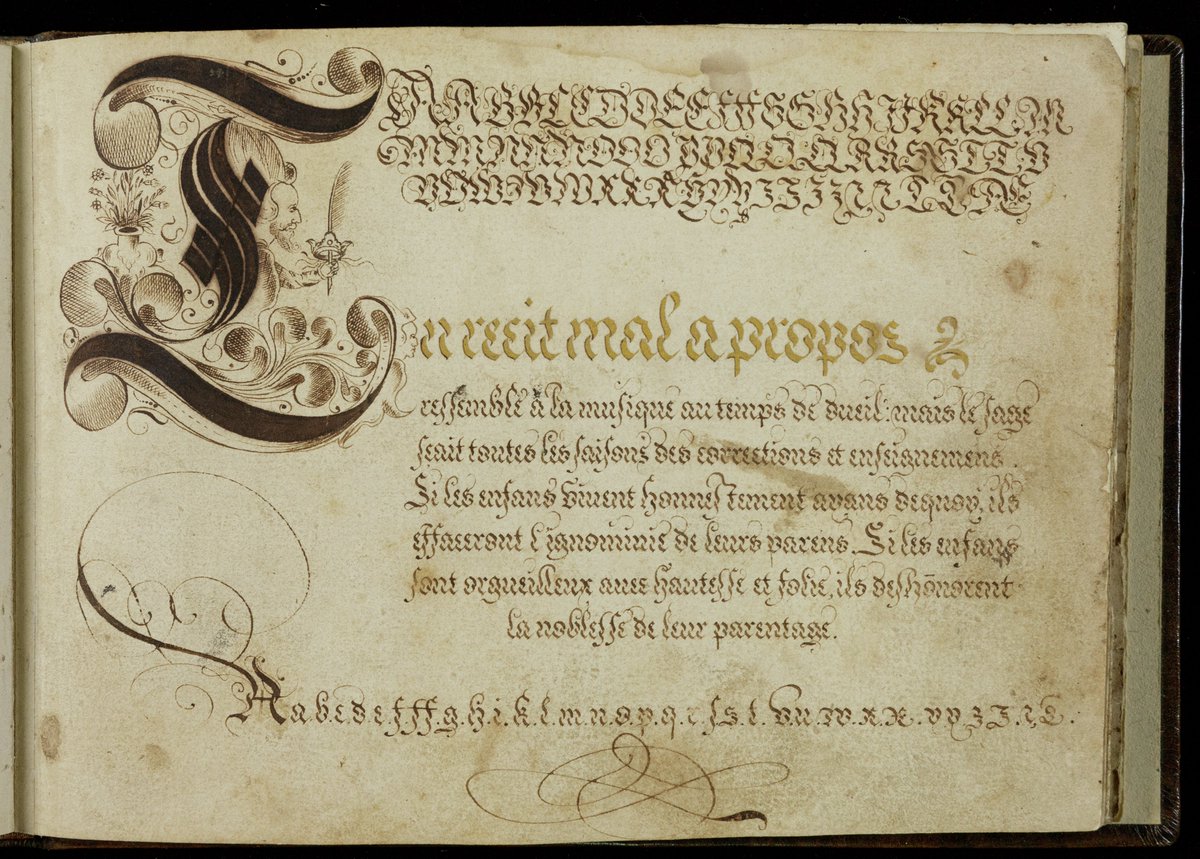 A A B B C C D D E E F ff G G H H I K K L L M
M M N N N O O O P P Q Q Q R R S S T T V
Un recit mal a propos
ressemble a la musique au temps de dueil: mais le sage
scait toutes les saisons des corrections et enseignemens.
Si les enfans vivent honnestement ayans dequoy, ils
effaceront l'ignominie de leurs parens. Si les enfans
sont orgueilleux avec hautesse et folie, ils deshōnorent
la noblesse de leur parentage.
A a.b.c.d.e.f.ff.g.h.i.k.l.m.n.o.p.q.r.s.s.t.v.u.w.x.x.y.y.z.z.